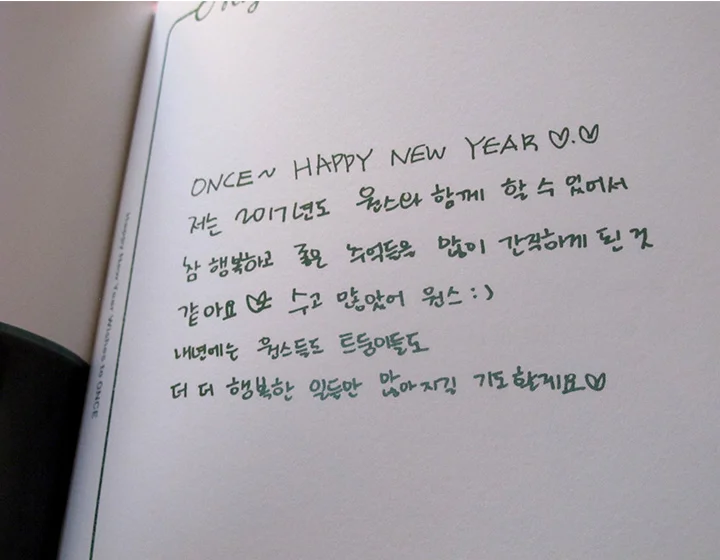 ONCE~ HAPPY NEW YEAR ♡.♡
저는 2017년도 원스와 함께 할 수 있어서
참 행복하고 좋은 추억들을 많이 간직하게 된 것
같아요 ♡ 수고 많았어 원스 :)
내년에는 원스들도 트둥이들도
더 더 행복한 일들만 많아지길 기도할게요♡
Happy New Year Wishes to ONCE